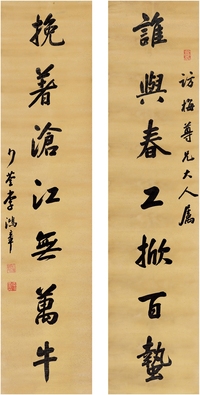 誰與春工掀百蟄
訪梅尊兄大人屬
挽著滄江無萬牛
少荃李鴻章